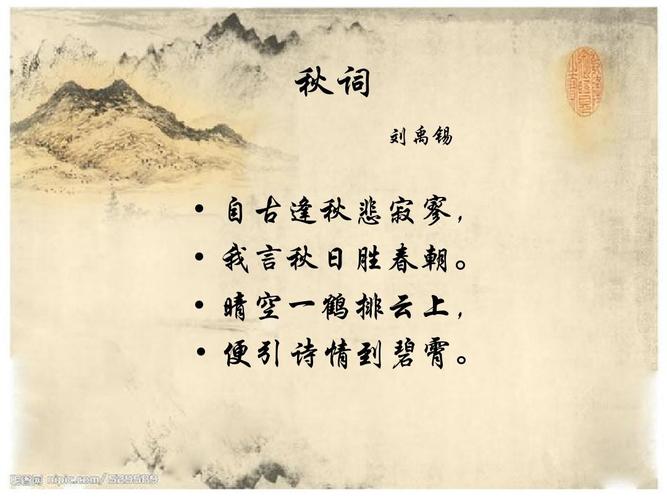 秋词
刘禹锡
• 自古逢秋悲寂寥，
• 我言秋日胜春朝。
• 晴空一鹤排云上，
• 便引诗情到碧霄。
昵图网 nipic.com/529589